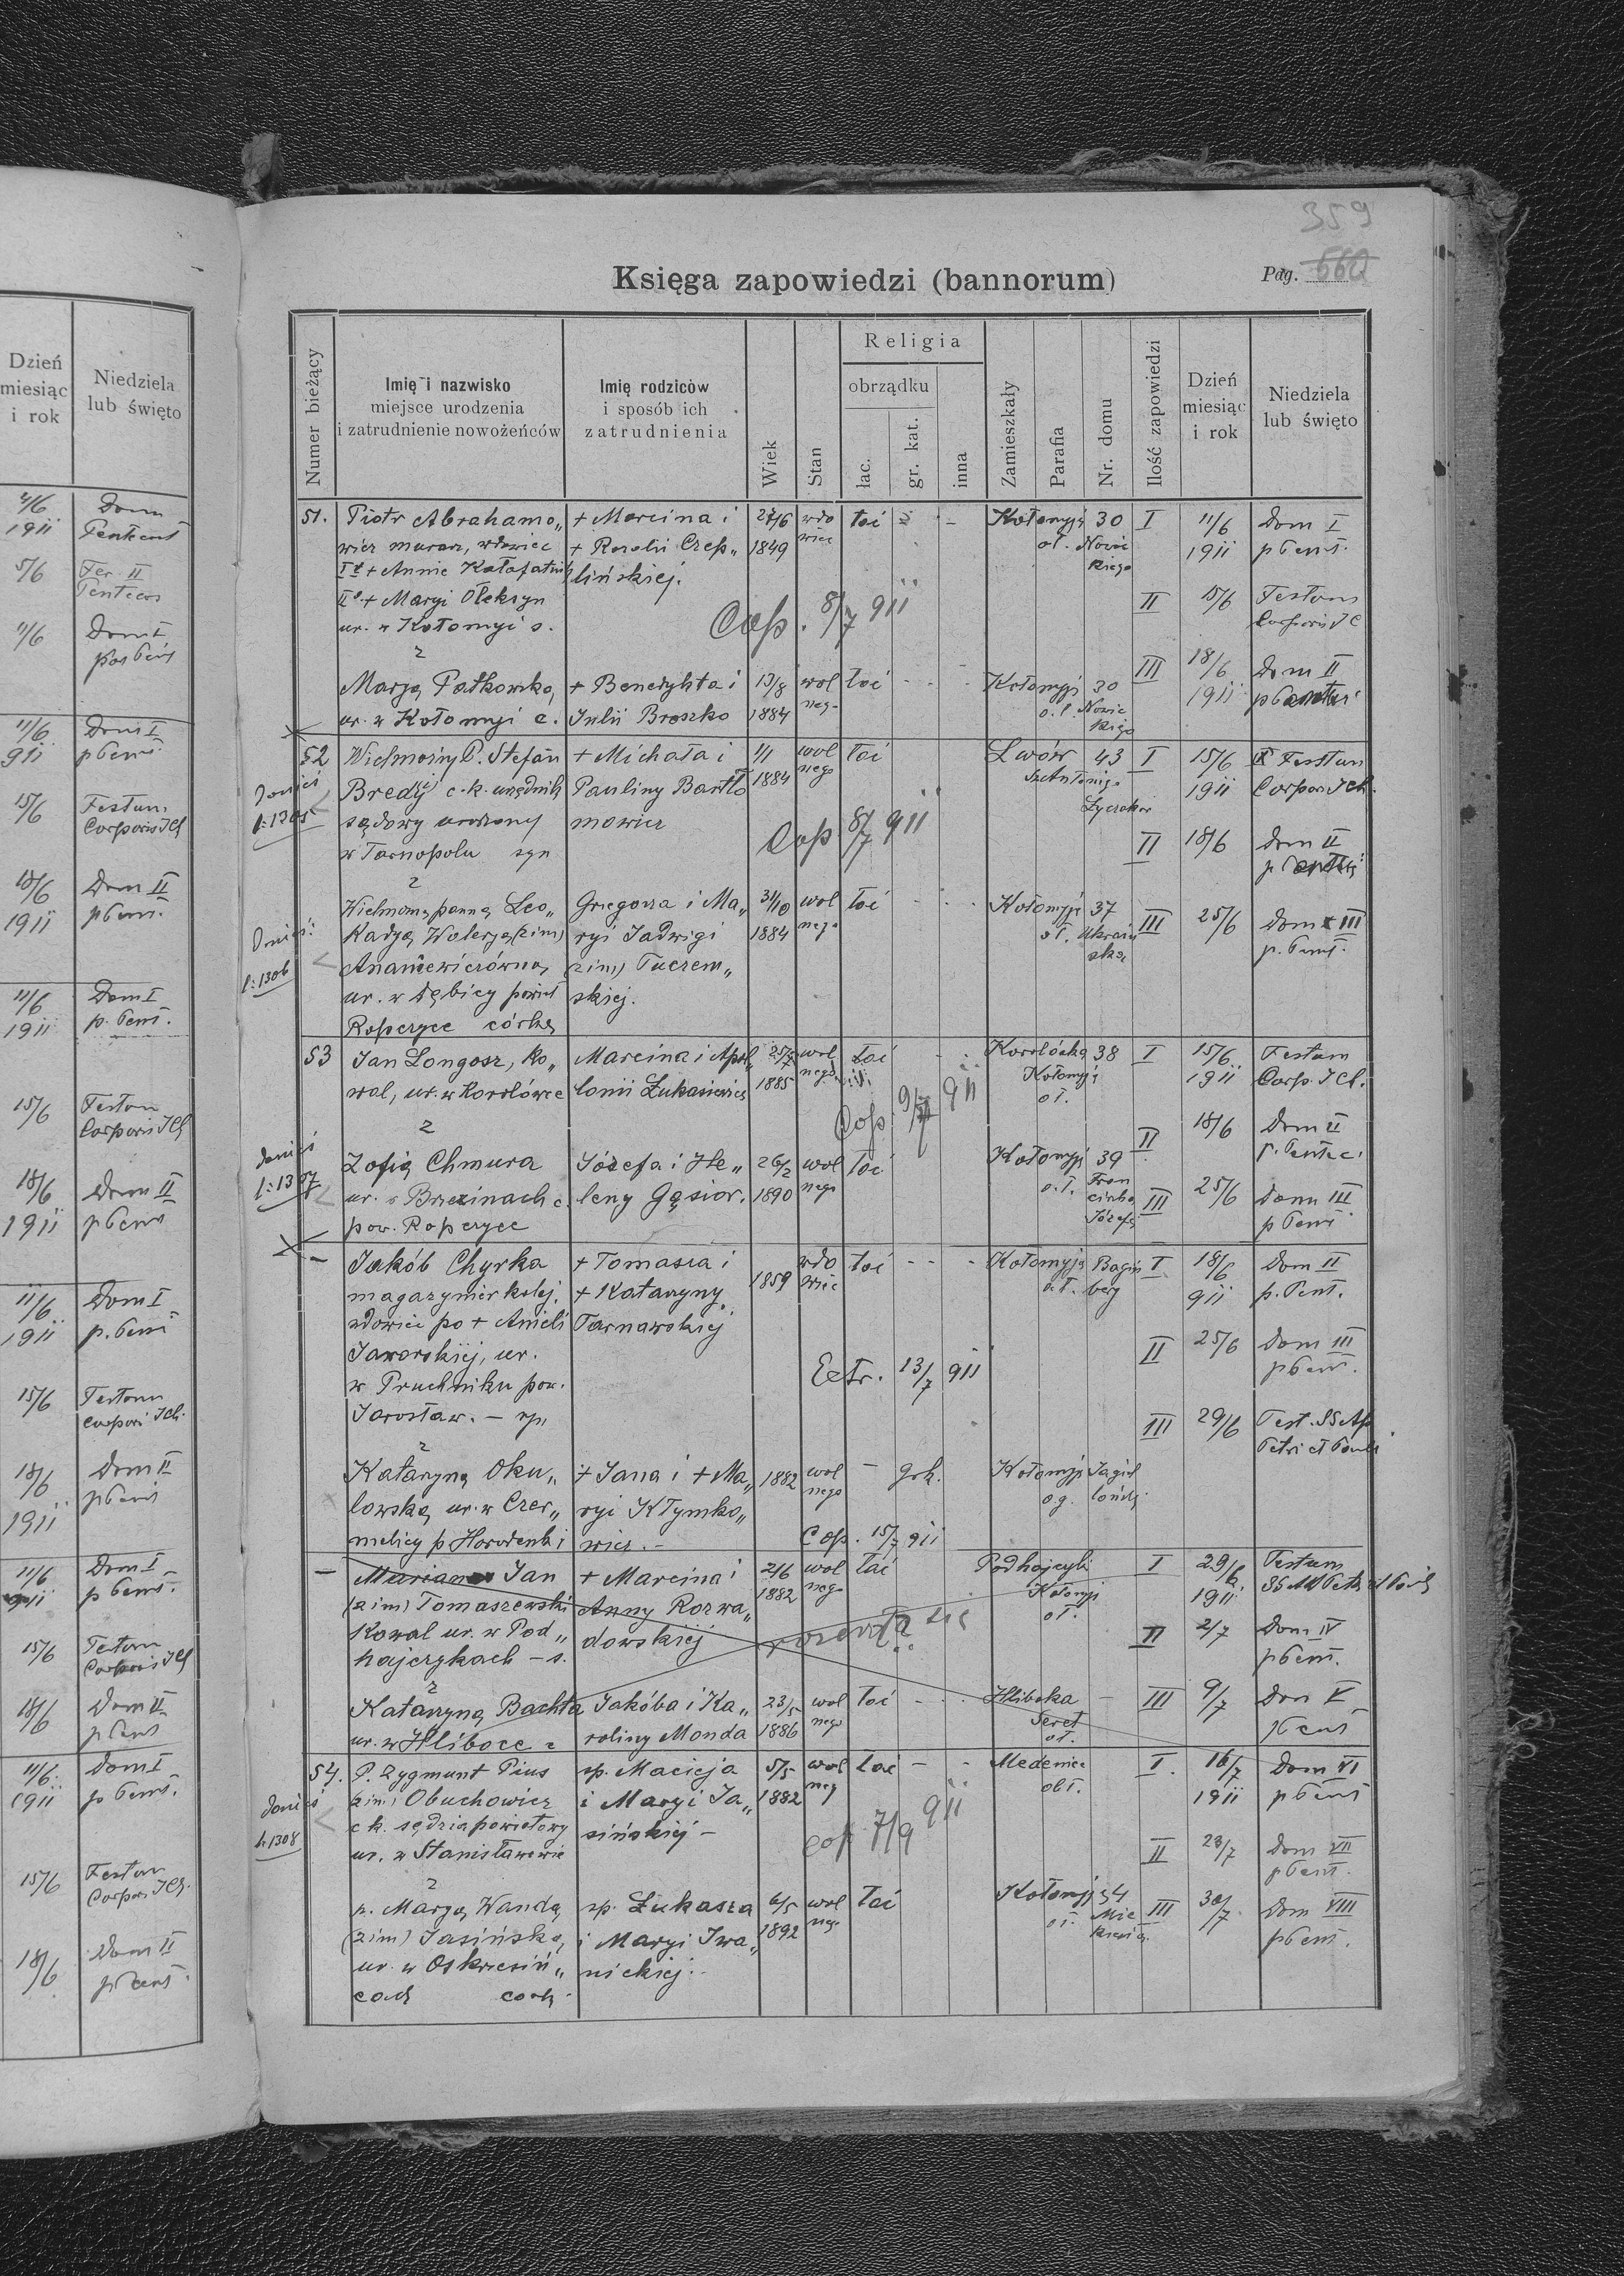 359
Księga zapowiedzi (bannorum)
Pag. 660
Dzień
miesiąc
i rok
Niedziela
lub święto
4/6
1911
Dom
5/6
Fer. II
Pentecos
11/6
Dom I
pos Pent
11/6
911
Dom I
p Pent
15/6
Festum
Corporis JCh
18/6
1911
Dom II
p Pent.
11/6
1911
Dom I
p. Pent.
15/6
Festum
Corporis JCh
18/6
1911
Dom II
p Pent
11/6
1911
Dom I
p. Pent
15/6
Festum
Corporis JCh.
18/6
1911
Dom II
p Pent
11/6
911
Dom I
p Pent.
15/6
Festum
Corporis JCh
18/6
Dom II
p Pent
11/6
1911
Dom I
p Pent.
15/6
Festum
Corporis JCh.
18/6
Dom II
p Pent.
Numer bieżący
Imię i nazwisko
miejsce urodzenia
i zatrudnienie nowożeńców
Imię rodziców
i sposób ich
zatrudnienia
Wiek
Stan
Religia
obrządku
łac.
gr. kat.
inna
Zamieszkały
Parafia
Nr. domu
Ilość zapowiedzi
Dzień
miesiąc
i rok
Niedziela
lub święto
51.
Piotr Abrahamo„
wicz murarz, wdowiec
Iº + Annie
IIº + Maryi Oleksyn
ur. w Kołomyi s.
z
+ Marcina i
+ Rozalii Czep„
lińskiej.
27/6
1849
wdo
wiec
łać
Kołomyja 30
oł. Nowic
kiego
I
11/6
1911
Dom I
p Pent.
II
15/6
Festum
Corporis J C
Cop. 8/7 911
III
18/6
1911
Dom II
p Pent
Maryą Patkowską
ur. w Kołomyi c.
+ Benedykta i
Julii Broszko
13/8
1884
wol
neg.
łać
Kołomyja 30
o.ł. Nowic
kiego
52
Wielmożny P. Stefan
Bredyj c. k. urzędnik
sądowy urodzony
w Tarnopolu syn
z
+ Michała i
Pauliny Bartło
mowicz
1/1
1884
wol
nego
łać
Lwów 43
Sw Antoniego
Łyczakow
I
15/6
1911
Festum
Corporis JCh.
Cop 8/7 911
II
18/6
Dom II
doniéś
l: 1305
Wielmożną pannę Leo„
kadyą Waleryą (2 im)
Ananiewiczówną
ur. w Dębicy powiat
Ropczyce córką
Grzegorza i Ma„
ryi Jadwigi
(2 im) Tuczem„
skiej.
31/10
1884
wol
nego
łać
Kołomyja 37
oł. Ukraiń
ska
III
25/6
Dom III
p. Pent.
l: 1306
53
Jan Longosz, ko„
wal, ur. w Korolówce
z
Marcina i Apol„
lonii Łukasiewicz
25/7
1885
wol
nego
łać
Korolówka 38
Kołomyja
oł.
I
15/6
1911
Festum
Corp. JCh.
Cop 9/7 911
II
18/6
Dom II
p. Pentec.
doniéś
l: 1307
Zofią Chmura
ur. w Brzezinach c.
pow. Ropczyce
Józefa i He„
leny Gąsior.
26/2
1890
wol
nego
łać
Kołomyja 39
o.ł. Fran
ciszka
Józefa
III
25/6
Dom III
p Pent
-
Jakób Chyrka
magazynier kolej.
wdowiec po + Anieli
Jaworskiej, ur.
w Pruchniku pow.
Jarosław. - syn
z
+ Tomasza i
+ Katarzyny
Tarnawskiej
1859
wdo
wiec
łać
Kołomyja Bagins
oł. berg
I
18/6
911
Dom II
p. Pent.
II
25/6
Dom III
p Pent.
Extr. 13/7 911
III
29/6
Fest. SS Ap
Petri et Pauli
Katarzyną Oku„
lowską ur. w Czer„
nelicy p Horodenki
+ Jana i + Ma„
ryi Kłymko„
wicz. -
1882
wol
nego
-
gr k.
Kołomyja Jagiel
o g. lońsk.
Cop. 15/7 911
-
Marian Jan
(2 im) Tomaszewski
Kowal ur. w Pod„
hajczykach - s.
z
+ Marcina i
Anny Rozwa„
dowskiej
2/6
1882
wol
nego
łać
Podhajczyki
Kołomyja
oł.
I
29/6
1911
Festum
SS App Petri et Pauli
II
2/7
Dom IV
p Pent.
Katarzyną Bachta
ur. w Hliboce c
Jakóba i Ka„
roliny Monda
23/5
1886
wol
nego
łać
Hliboka
Seret
oł.
III
9/7
Dom V
p Pent
54.
P. Zygmunt Pius
(2 im) Obuchowicz
c k. sędzia powiatowy
ur. w Stanisławowie
z
sp. Macieja
i Maryi Ja„
sińskiej -
5/5
1882
wol
neg
łać
Medenice
obł.
I.
16/7
1911
Dom VI
p Pent
Cop 7/9 911
II
23/7
Dom VII
p Pent.
doniéś
l: 1308
p. Maryą Wandą
(2 im) Jasińską
ur. w Oskrzesiń„
cach cork.
sp. Łukasza
i Maryi Iwa„
nickiej.
6/5
1892
wol
neg
łać
Kołomyja 54
oł. Mic
kiewicza
III
30/7
Dom VIII
p Pent.